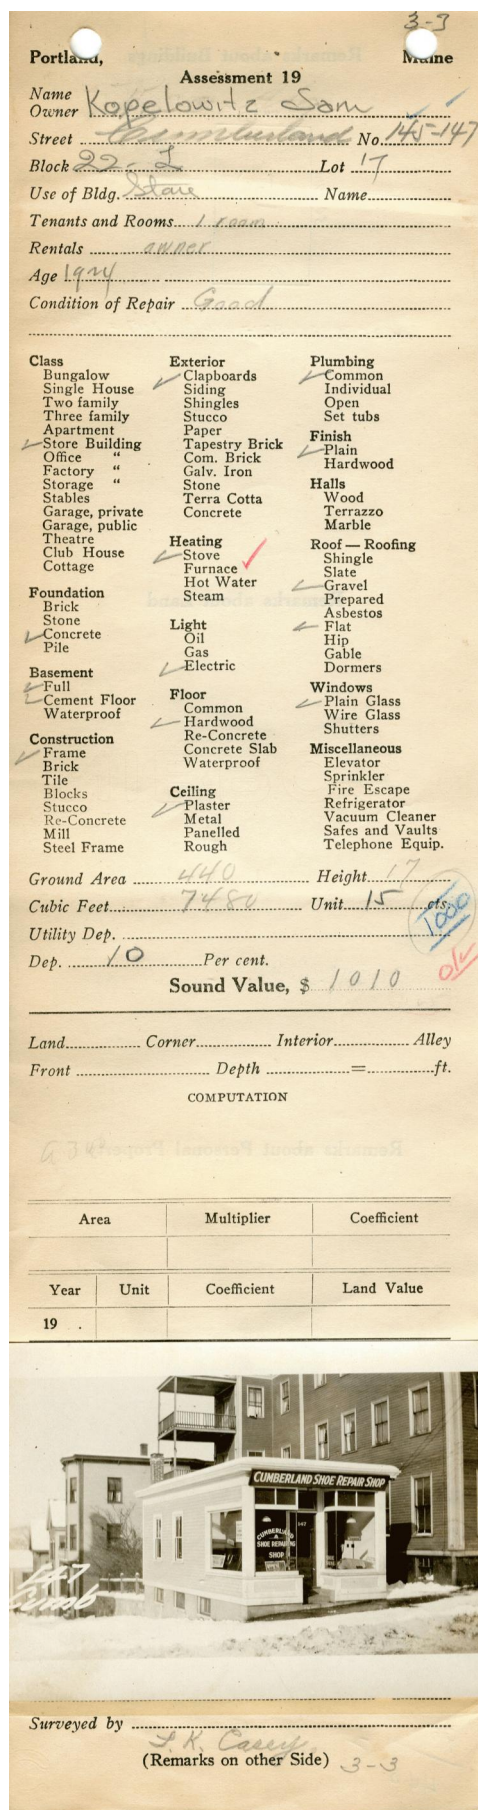 3-3
Portland, Maine
Assessment 19
Name
Owner Kopelowitz Sam
Street Cumberland No. 145-147
Block 22-I Lot 17
Use of Bldg. Store Name
Tenants and Rooms 1 room
Rentals owner
Age 1924
Condition of Repair Good
Class
Bungalow
Single House
Two family
Three family
Apartment
Store Building
Office "
Factory "
Storage "
Stables
Garage, private
Garage, public
Theatre
Club House
Cottage
Foundation
Brick
Stone
Concrete
Pile
Basement
Full
Cement Floor
Waterproof
Construction
Frame
Brick
Tile
Blocks
Stucco
Re-Concrete
Mill
Steel Frame
Exterior
Clapboards
Siding
Shingles
Stucco
Paper
Tapestry Brick
Com. Brick
Galv. Iron
Stone
Terra Cotta
Concrete
Heating
Stove
Furnace
Hot Water
Steam
Light
Oil
Gas
Electric
Floor
Common
Hardwood
Re-Concrete
Concrete Slab
Waterproof
Ceiling
Plaster
Metal
Panelled
Rough
Plumbing
Common
Individual
Open
Set tubs
Finish
Plain
Hardwood
Halls
Wood
Terrazzo
Marble
Roof — Roofing
Shingle
Slate
Gravel
Prepared
Asbestos
Flat
Hip
Gable
Dormers
Windows
Plain Glass
Wire Glass
Shutters
Miscellaneous
Elevator
Sprinkler
Fire Escape
Refrigerator
Vacuum Cleaner
Safes and Vaults
Telephone Equip.
Ground Area 440 Height 17
Cubic Feet 7480 Unit 15 cts.
1000
Utility Dep.
Dep. 10 Per cent.
OK
Sound Value, $ 1010
Land Corner Interior Alley
Front Depth = ft.
COMPUTATION
Area Multiplier Coefficient
Year Unit Coefficient Land Value
19 .
CUMBERLAND SHOE REPAIR SHOP
147
CUMBERLAND
SHOE REPAIRING
SHOP
147
Cumb
Surveyed by J. K. Casey
(Remarks on other Side) 3-3